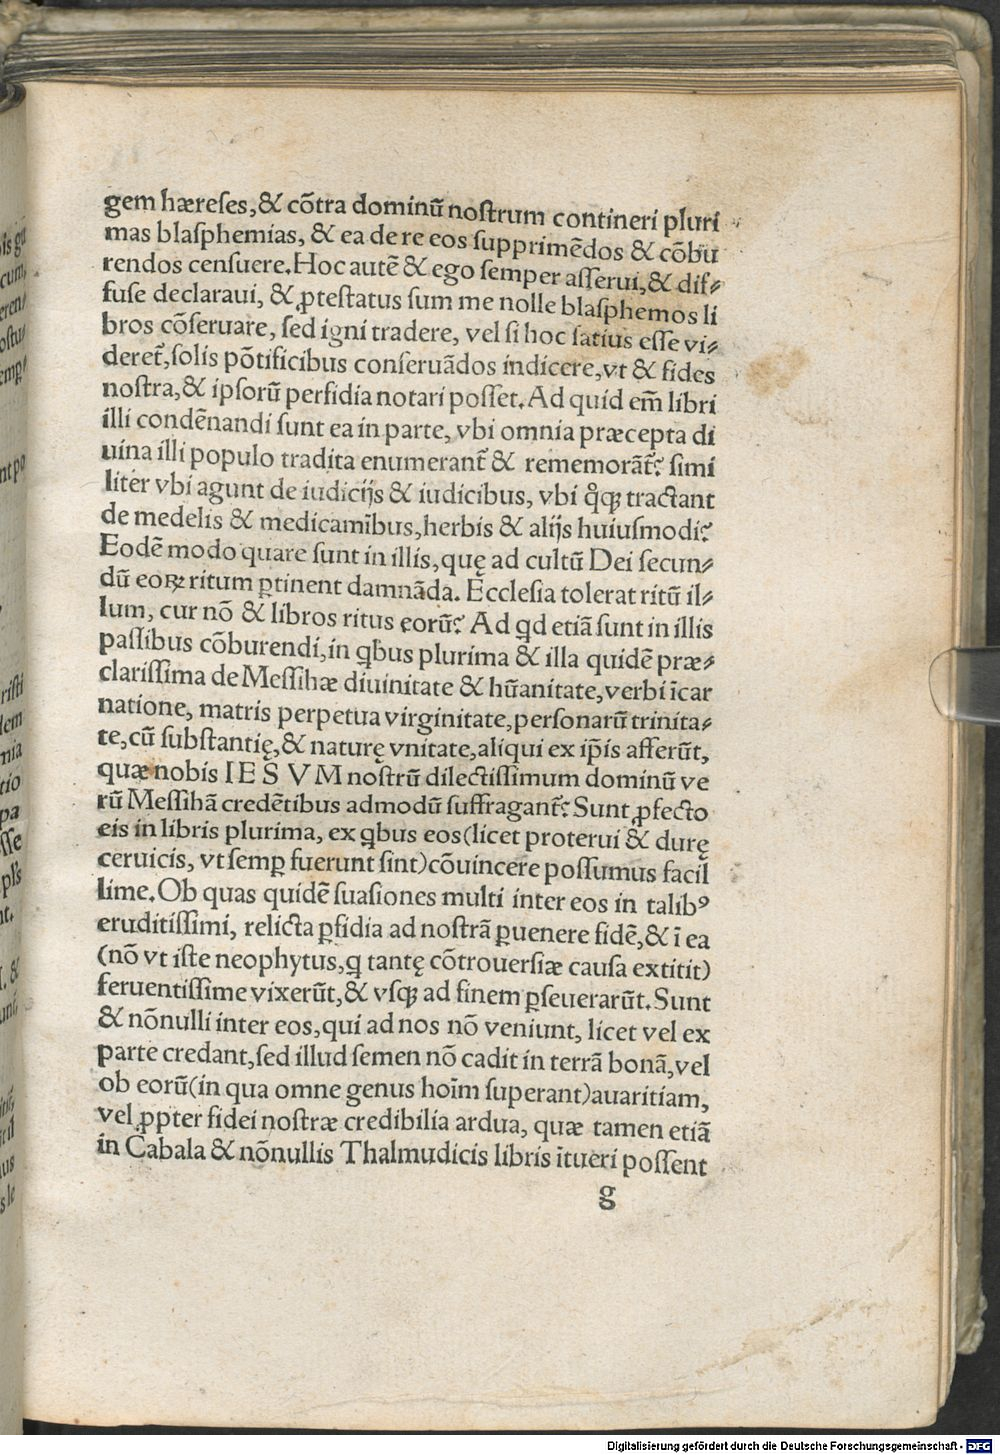 gem hæreſes, & cõtra dominũ noſtrum contineri pluri
mas blaſphemias, & ea de re eos ſupprimẽdos & cõbu
rendos cenſuere. Hoc autẽ & ego ſemper aſſerui, & dif⸗
fuſe declaraui, & ꝓteſtatus ſum me nolle blaſphemos li
bros cõſeruare, ſed igni tradere, vel ſi hoc ſatius eſſe vi⸗
deret᷑, ſolis põtificibus conſeruãdos indicere, vt & fides
noſtra, & ipſorũ perfidia notari poſſet. Ad quid em̃ libri
illi condẽnandi ſunt ea in parte, vbi omnia præcepta di
uina illi populo tradita enumerant᷑ & rememorãt᷑? ſimi
liter vbi agunt de iudicijs & iudicibus, vbi q̊ꝗ tractant
de medelis & medicamĩbus, herbis & alijs huiuſmodi?
Eodẽ modo quare ſunt in illis, quę ad cultũ Dei ſecun⸗
dũ eoꝝ ritum ꝑtinent damnãda. Eccleſia tolerat ritũ il⸗
lum, cur nõ & libros ritus eorũ? Ad qd etiã ſunt in illis
paſſibus cõburendi, in qbus plurima & illa quidẽ præ⸗
clariſſima de Meſſihæ diuinitate & hũanitate, verbi ĩcar
natione, matris perpetua virginitate, perſonarũ trinita⸗
te, cũ ſubſtantię, & naturę vnitate, aliqui ex ip̃is afferũt,
quæ nobis IESVM noſtrũ dilectiſſimum dominũ ve
rũ Meſſihã credẽtibus admodũ ſuffragant᷑? Sunt ꝓfecto
eis in libris plurima, ex qbus eos (licet proterui & durę
ceruicis, vt ſemꝑ fuerunt ſint) cõuincere poſſumus facil
lime. Ob quas quidẽ ſuaſiones multi inter eos in talibꝰ
eruditiſſimi, relicta ꝑfidia ad noſtrã ꝑuenere fidẽ, & ĩ ea
(nõ vt iſte neophytus, q tantę cõtrouerſiæ cauſa extitit)
feruentiſſime vixerũt, & vſꝗ ad finem ꝑſeuerarũt. Sunt
& nõnulli inter eos, qui ad nos nõ veniunt, licet vel ex
parte credant, ſed illud ſemen nõ cadit in terrã bonã, vel
ob eorũ (in qua omne genus hoĩm ſuperant) auaritiam,
vel ꝓpter fidei noſtræ credibilia ardua, quæ tamen etiã
in Cabala & nõnullis Thalmudicis libris ĩtueri poſſent
g
Digitalisierung gefördert durch die Deutsche Forschungsgemeinschaft - DFG